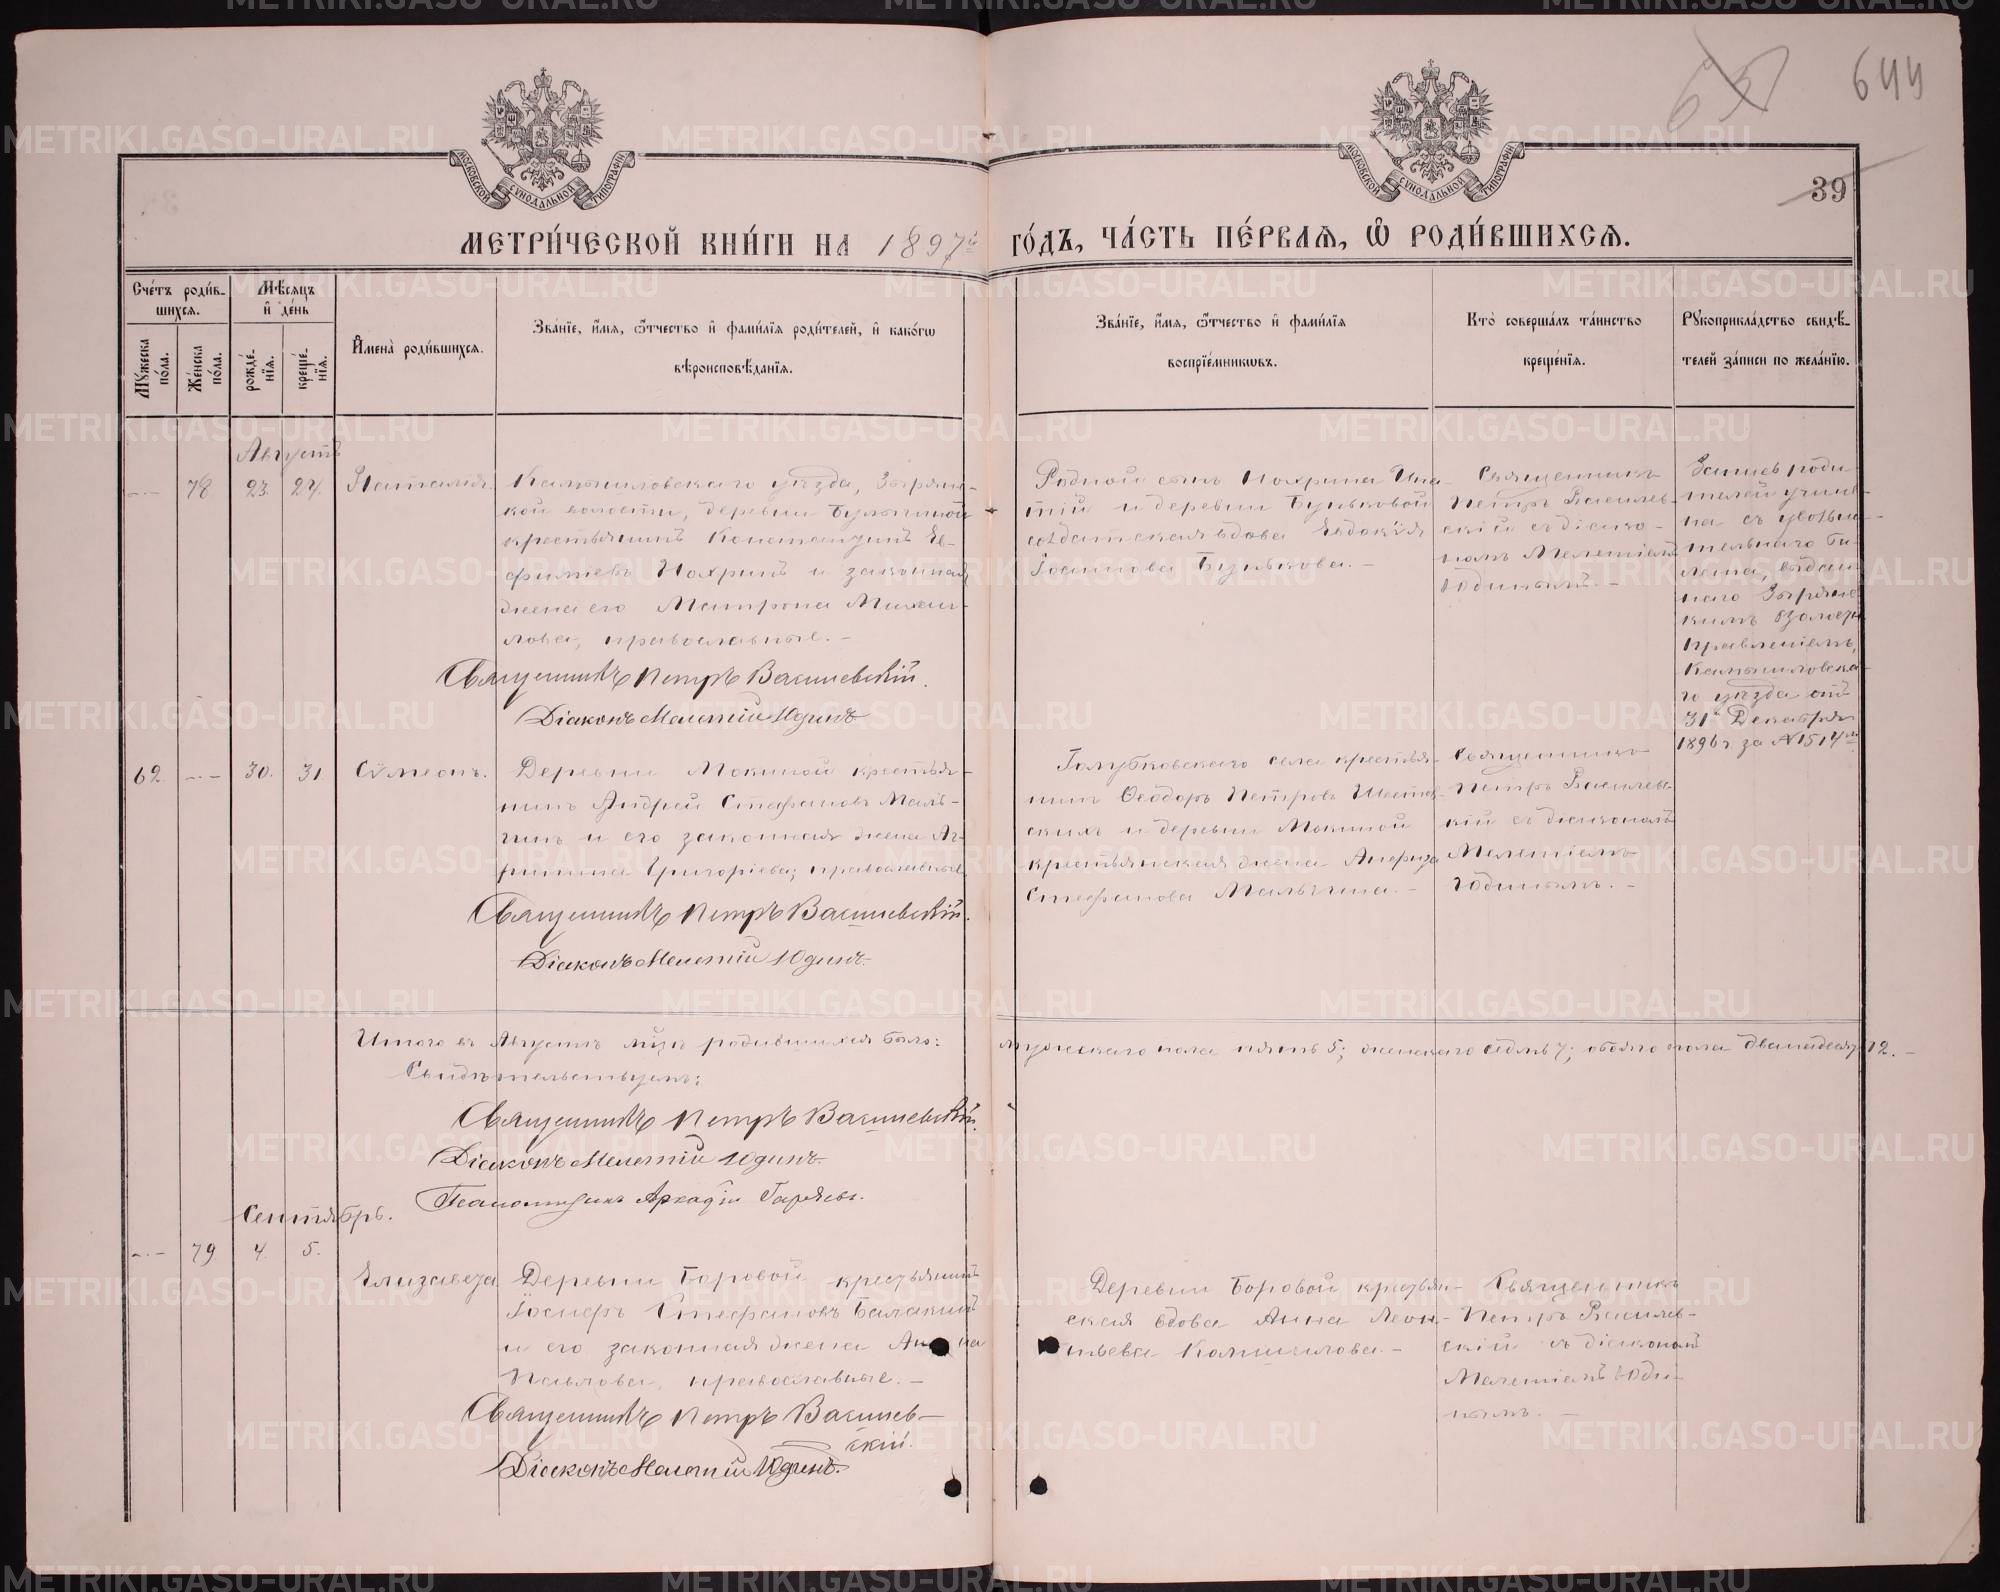 644
39
МОСКОВСКОЙ СѴНОДАЛЬНОЙ ТИПОГРАФІИ
МОСКОВСКОЙ СѴНОДАЛЬНОЙ ТИПОГРАФІИ
МЕТРИ́ЧЕСКОЙ КНИ́ГИ НА 1897й ГО́ДЪ, ЧА́СТЬ ПЕ́РВАѦ, Ѽ РОДИ́ВШИХСѦ.
Сче́тъ роди́в-
шихсѧ.
Мꙋ́жеска по́ла.
Же́нска по́ла.
Мѣ́сѧцъ и҆ де́нь
рожде́-нїѧ.
креще́-нїѧ.
И҆мена̀ роди́вшихсѧ.
Зва́нїе, и҆́мѧ, ѻ҆́тчество и҆ фами́лїѧ роди́телей, и҆ како́гѡ
вѣроисповѣ́данїѧ.
Зва́нїе, и҆́мѧ, ѻ҆́тчество и҆ фами́лїѧ
воспрїе́мникѡвъ.
Кто̀ соверша́лъ та́инство
креще́нїѧ.
Рꙋкоприкла́дство свидѣ́-
телей за́писи по жела́нїю.
Августъ
-·- 78 23. 24. Наталія.
Камышловскаго уѣзда, Зырян-
ской волости, деревни
крестьянинъ Константинъ Ев-
фиміевъ Нохринъ и законная
жена его Матрона Михаи-
лова, православные. -
Священникъ Петръ Васильевскій.
Діаконъ Мелетій Юдинъ
Родной сынъ Нохрина Ипа-
тій и деревни Буньковой
солдатская вдова Евдокія
Іосипова Бунькова. -
Священникъ
Петръ Василев-
скій съ діако-
номъ Мелетіемъ
Юдинымъ. -
Запись роди-
телей учине-
на съ увольни-
тельнаго би-
лета, выдан-
наго Зырянс-
кимъ Волост.
Правленіемъ,
Камышловска-
го уѣзда отъ
31 Декабря
1896 г. за № 1514м
62. -·- 30. 31. Сѵмеонъ.
Деревни Мокиной крестья-
нинъ Андрей Стефановъ Маль-
гинъ и его законная жена Аг-
рипина Григоріева; православные
Священникъ Петръ Васильевскій.
Діаконъ Мелетій Юдинъ.
Голубковскаго села крестья-
нинъ Ѳеодоръ Петровъ
скихъ и деревни Мокиной
крестьянская жена Анфиза
Стефанова Мальгина. -
Священникъ
Петръ Василев-
кій съ діакономъ
Мелетіемъ
Юдинымъ. -
Итого въ Августѣ м-цѣ родившихся было: мужескаго пола пять 5; женскаго седмь 7; обоего пола двенадцать 12. -
Свидѣтельствуемъ:
Священникъ Петръ Васильевскій.
Діаконъ Мелетій Юдинъ.
Псаломщикъ Аркадій Гаряевъ.
Сентябрь.
-·- 79. 4. 5.
Елизавета
Деревни Боровой крестьянинъ
Іосифъ Стефановъ Балакинъ
и его законная жена Ан на
Павлова, православные. -
Священникъ Петръ Васильев-
скій.
Діаконъ Мелетій Юдинъ.
Деревни Боровой крестьян-
ская вдова Анна Леон-
тьева
Священникъ
Петръ Василев-
скій съ діакономъ
Мелетіемъ Юди-
нымъ. -
METRIKI.GASO-URAL.RU